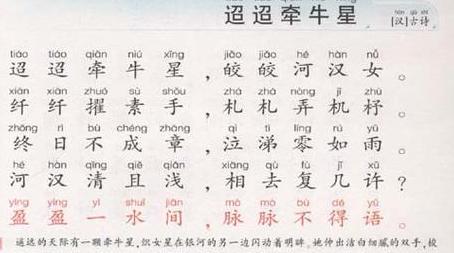 迢迢牵牛星
hàn gǔ shī
[汉]古诗
tiáo tiáo qiān niú xīng jiǎo jiǎo hé hàn nǚ
迢迢牵牛星，皎皎河汉女。
xiān xiān zhuó sù shǒu zhá zhá nòng jī zhù
纤纤擢素手，札札弄机杼。
zhōng rì bù chéng zhāng qì tì líng rú yǔ
终日不成章，泣涕零如雨。
hé hàn qīng qiě qiǎn xiāng qù fù jǐ xǔ
河汉清且浅，相去复几许？
yíng yíng yì shuǐ jiān mò mò bù dé yǔ
盈盈一水间，脉脉不得语。
遥远的天际有一颗牵牛星，织女星在银河的另一边闪动着明眸。她伸出洁白细腻的双手，梭